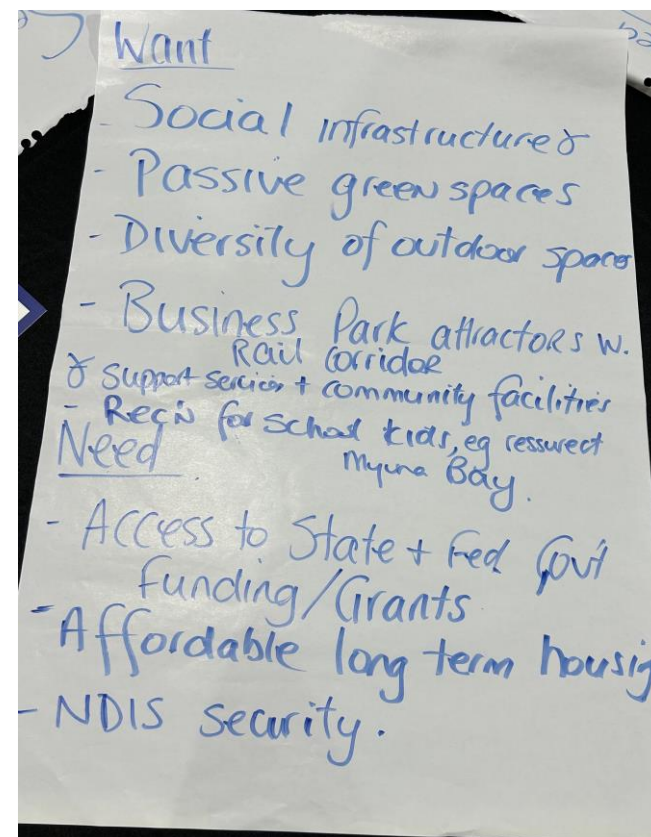 Want
- Social infrastructure &
- Passive green spaces
- Diversity of outdoor space
- Business Park attractors w.
Rail Corridor
& support services + community facilities
- Rec'n for school kids, eg ressurect
Myuna Bay.
Need
- Access to State + Fed. Gov't
Funding/Grants
- Affordable long term housig
- NDIS security.